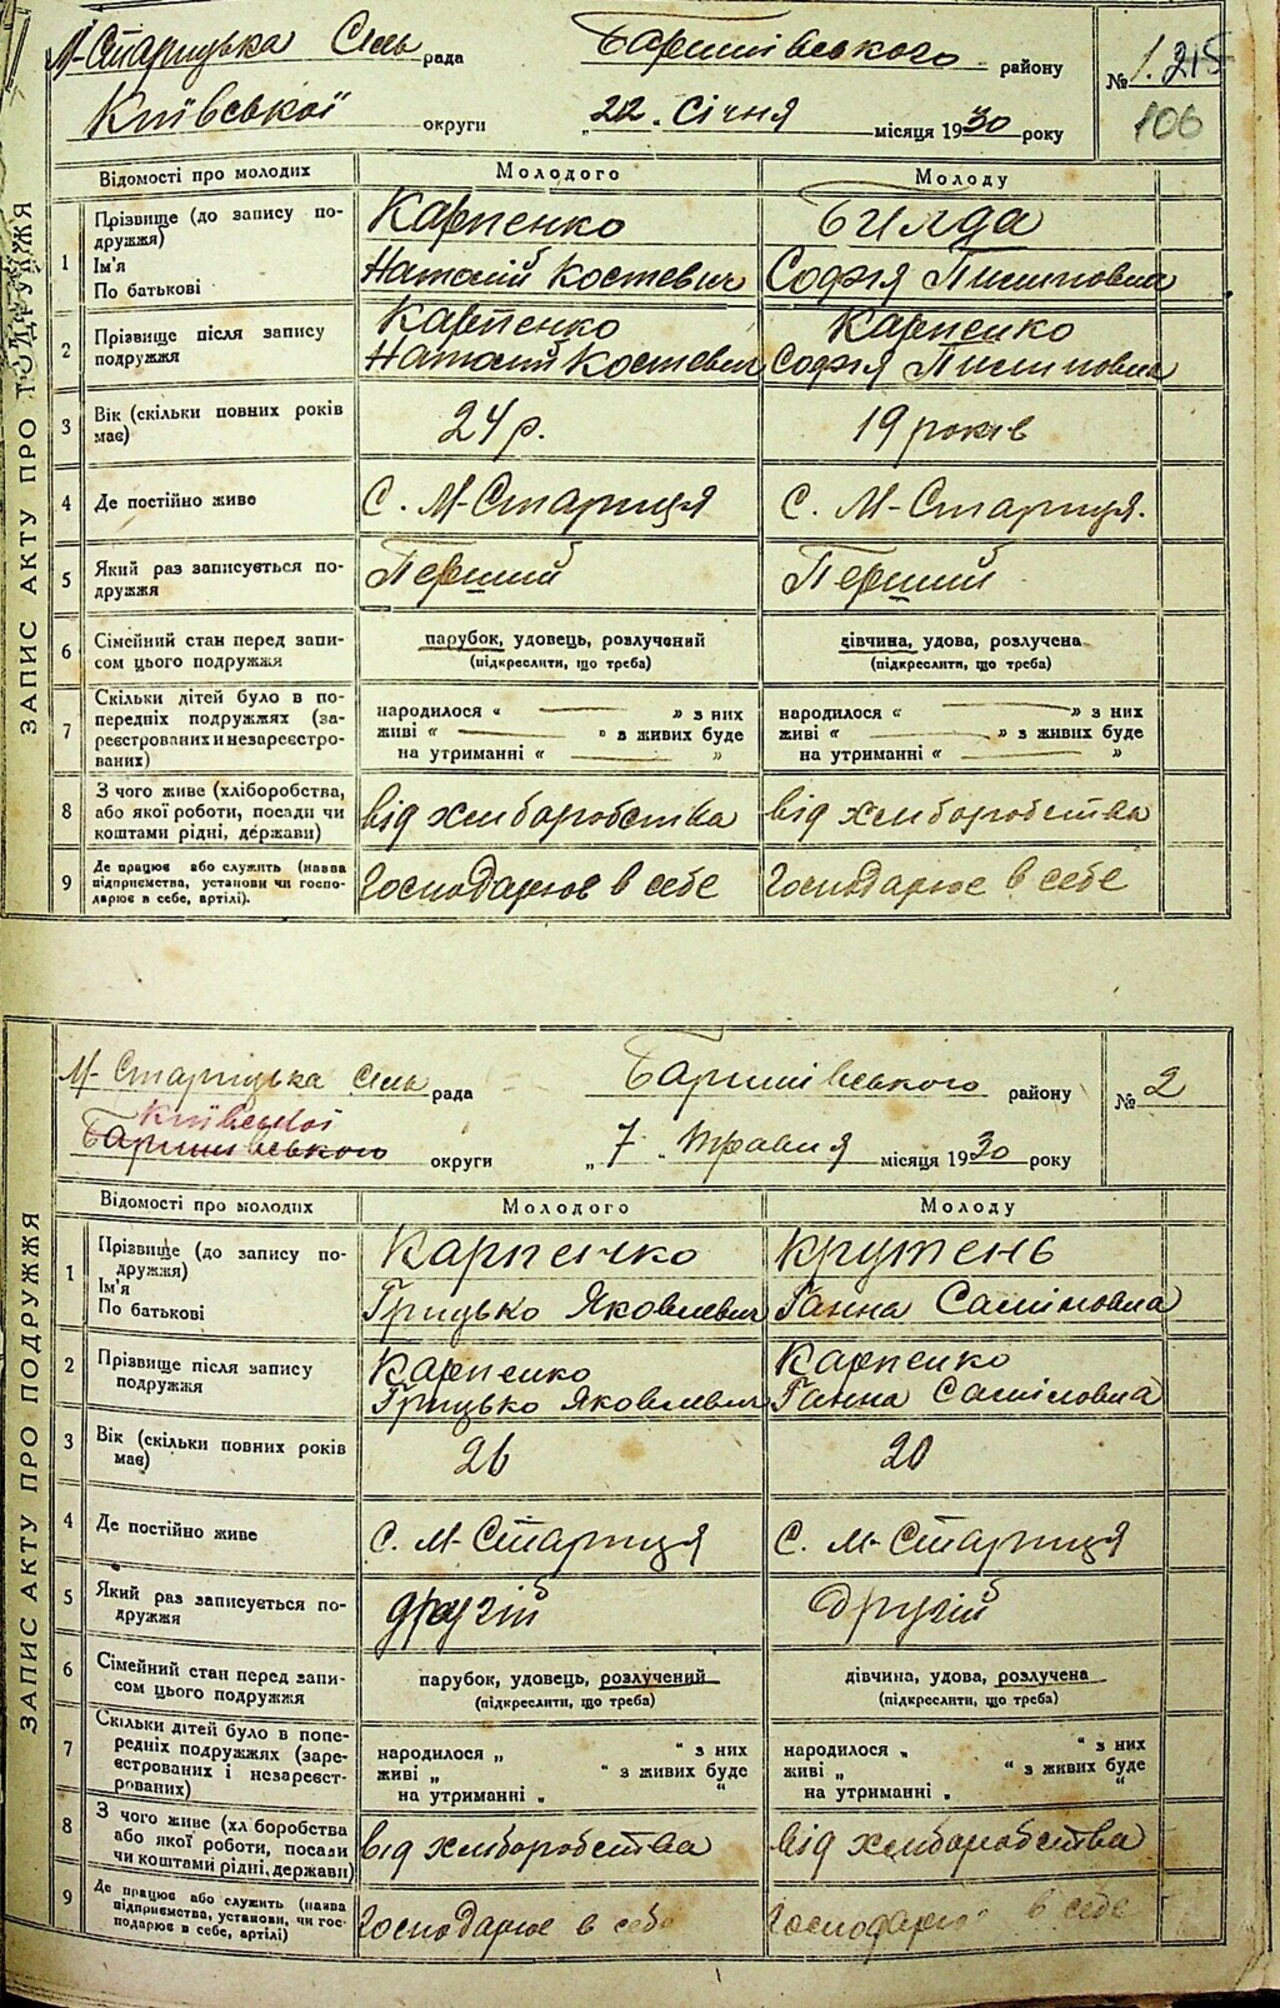 М-Старицька Сіль рада Баришівського району № 1. 215
Київської округи „22„ Січня місяця 1930 року 106
ЗАПИС АКТУ ПРО ПОДРУЖЖЯ
Відомості про молодих Молодого Молоду
1 Прізвище (до запису по- Карпенко
дружжя)
Ім'я Наталій Костевич Софія Пилиповна
По батькові
2 Прізвище після запису Карпенко Карпенко
подружжя Наталій Костевич Софія Пилиповна
3 Вік (скільки повних років 24 р. 19 років
має)
4 Де постійно живе С. М-Стариця С. М-Стариця.
5 Який раз записується по- Перший Перший
дружжя
6 Сімейний стан перед запи- парубок, удовець, розлучений дівчина, удова, розлучена
сом цього подружжя (підкреслити, що треба) (підкреслити, що треба)
7 Скільки дітей було в по- народилося « — » з них народилося « — » з них
передніх подружжях (за- живі « — » з живих буде живі « — » з живих буде
реєстрованих и незареєстро- на утриманні « — » на утриманні « — »
ваних)
8 З чого живе (хліборобства, від хліборобства від хліборобства
або якої роботи, посади чи
коштами рідні, держави)
9 Де працює або служить (назва Господарює в себе Господарює в себе
підприємства, установи чи госпо-
дарює в себе, артілі).
М-Старицька Сіль рада Баришівського району № 2
Київської
Баришівського округи „7„ Травня місяця 1930 року
ЗАПИС АКТУ ПРО ПОДРУЖЖЯ
Відомості про молодих Молодого Молоду
1 Прізвище (до запису по- Карпенко Крутень
дружжя)
Ім'я Грицько Яковлевич Ганна Самійловна
По батькові
2 Прізвище після запису Карпенко Карпенко
подружжя Грицько Яковлевич Ганна Самійловна
3 Вік (скільки повних років 26 20
має)
4 Де постійно живе С. М-Стариця С. М-Стариця
5 Який раз записується по- другій другій
дружжя
6 Сімейний стан перед запи- парубок, удовець, розлучений дівчина, удова, розлучена
сом цього подружжя (підкреслити, що треба) (підкреслити, що треба)
7 Скільки дітей було в попе- народилося „ “ з них народилося „ “ з них
редніх подружжях (заре- живі „ “ з живих буде живі „ “ з живих буде
єстрованих і незареєст- на утриманні „ “ на утриманні „ “
рованих)
8 З чого живе (хл боробства від хліборобства від хліборобства
або якої роботи, посади
чи коштами рідні, держави)
9 Де працює або служить (назва Господарює в себе Господарює в себе
підприємства, установи, чи гос-
подарює в себе, артілі)